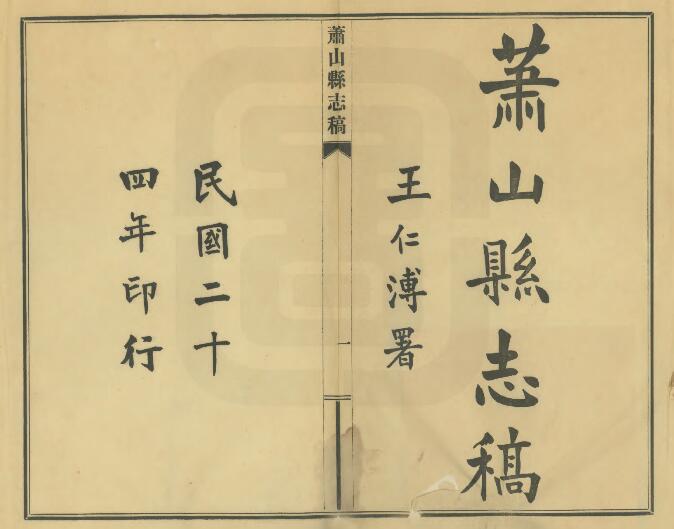 蕭山縣志稿
王仁溥署
蕭山縣志稿
一
民國二十
四年印行